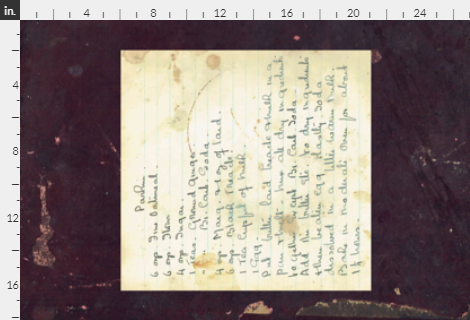 in. 4 8 12 16 20 24
4
8
12
16
Parkin
6 ozs Fine Oatmeal.
6 ozs Flour
4 ozs Sugar.
1 Teas. Ground Ginger
Bi-Carb Soda.
4 ozs Marg. + oz of Lard.
6 ozs Black Treacle
1 Tea Cupful of Milk
1 Egg.
Put butter lard treacle + milk in a
pan + melt. mix all dry ingredients
together except Bi Carb Soda.
Add the butter etc to dry ingredients
then beaten egg lastly Soda
dissolved in a little warm milk.
Bake in moderate oven for about
hours.